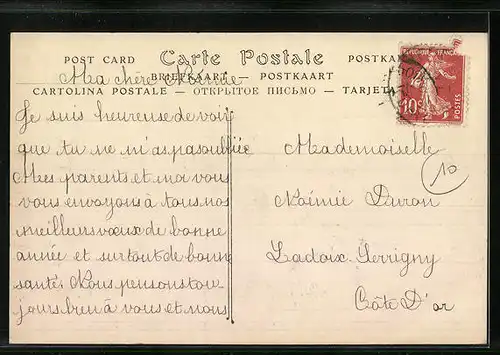 POST CARD Carte Postale POSTKAR
Ma chère Noémie
BRIEFKAART — POSTKAART
CARTOLINA POSTALE — ОТКРЫТОЕ ПИСЬМО — TARJETA
RÉPUBLIQUE FRANÇAISE
10
POSTES
Je suis heureuse de voir
que tu ne m'as pas oubliée
Mes parents et moi vous
vous envoyons à tous nos
meilleurs vœux de bonne
année et surtout de bonne
santé. Nous pensons tou
jours bien à vous et nous
Mademoiselle
10
Noémie Duron
Ladoix-Serrigny
Côte D'or